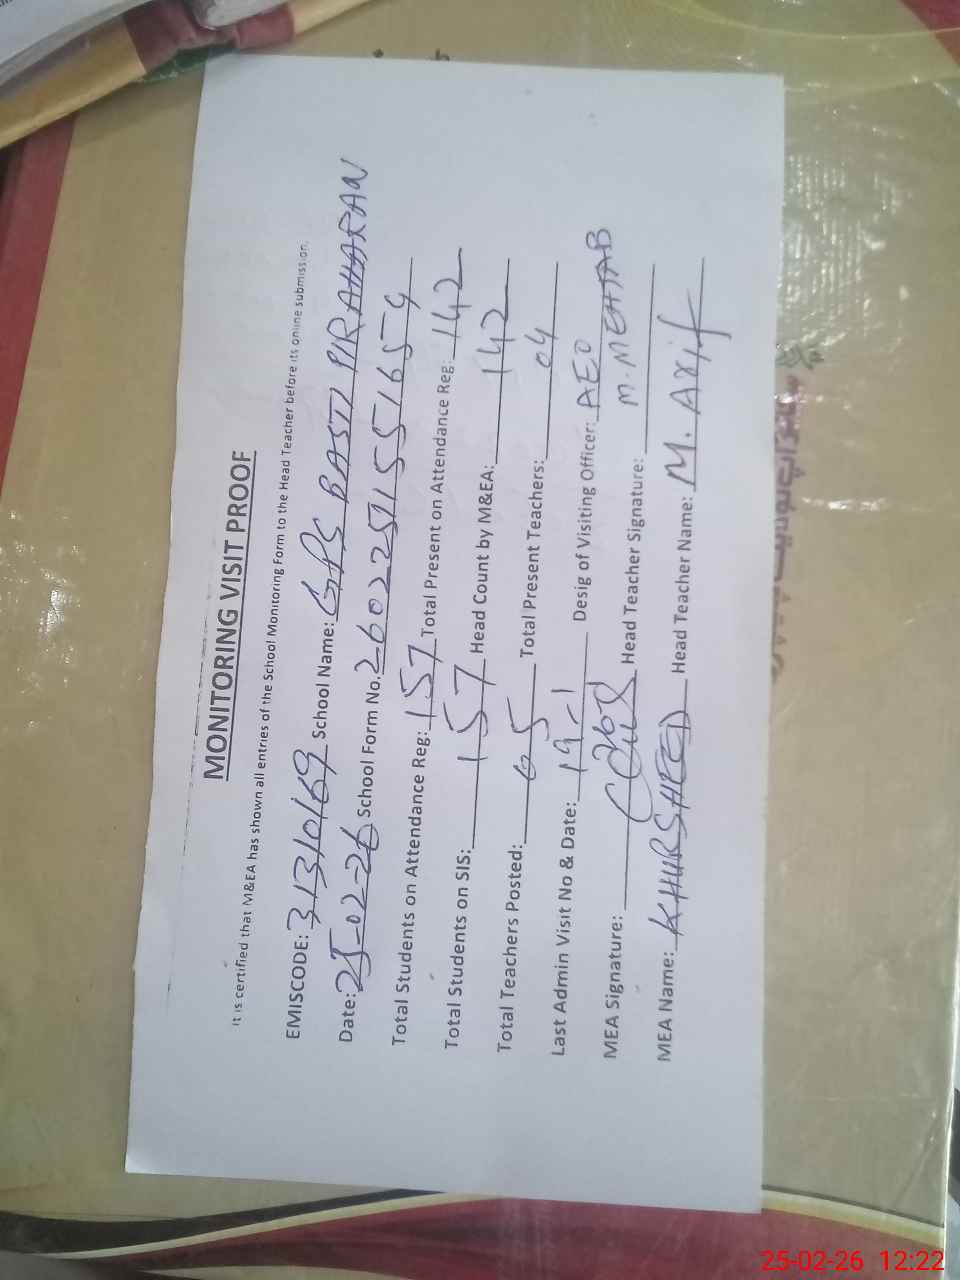 MONITORING VISIT PROOF
It is certified that M&EA has shown all entries of the School Monitoring Form to the Head Teacher before its online submission.
EMISCODE: 31310169 School Name: GPS BASTI PIRAHARAN
Date: 25-02-26 School Form No. 2602251551654
Total Students on Attendance Reg: 157 Total Present on Attendance Reg: 142
Total Students on SIS: 157 Head Count by M&EA: 142
Total Teachers Posted: 05 Total Present Teachers: 04
Last Admin Visit No & Date: 19-1 Desig of Visiting Officer: AEO
M. MEHTAB
MEA Signature: Head Teacher Signature:
MEA Name: KHURSHEED Head Teacher Name: M. Axif
25-02-26 12:22